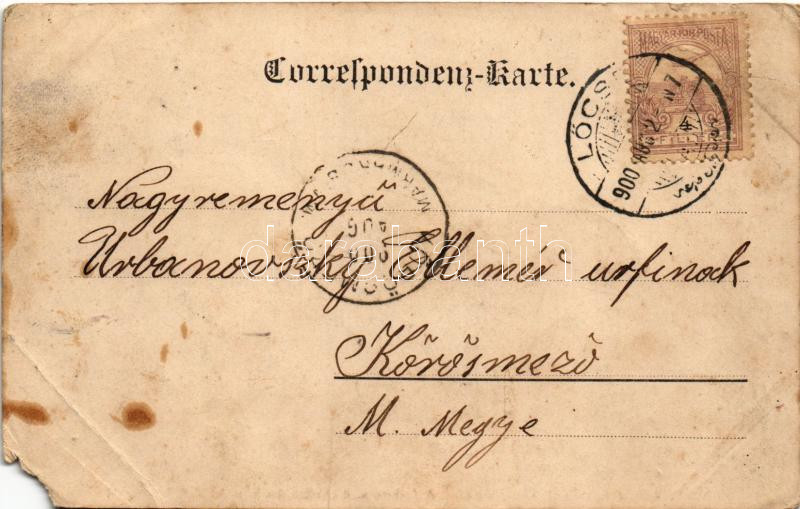 Correspondenz-Karte.
MAGYAR KIR. POSTA
FILLÉR
LŐCSE
900 AUG 2
N7
Nagyreményű
Urbanovszky Elemér urfinak
Kőrösmező
M. Megye
darabanth